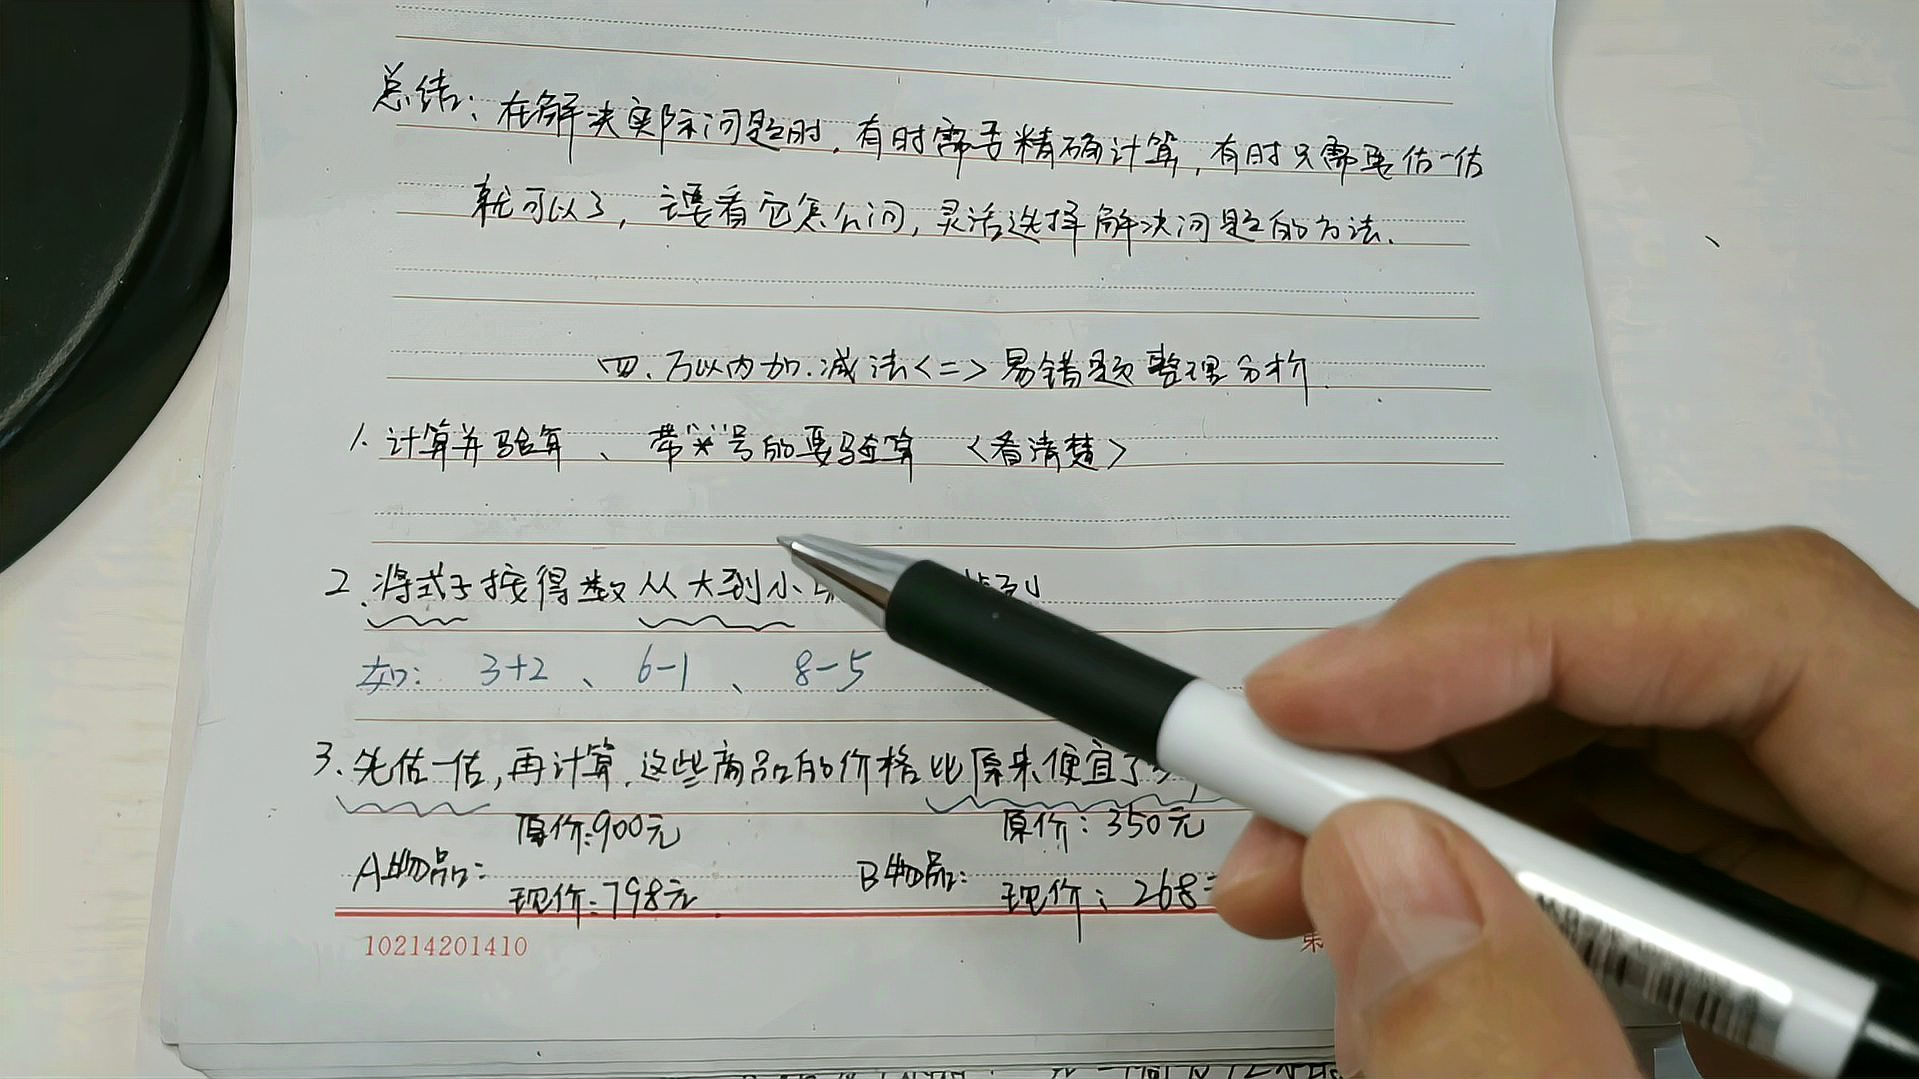 总结：在解决实际问题时，有时需要精确计算，有时只需要估一估
就可以了，主要看它怎么问，灵活选择解决问题的方法.
四.万以内加.减法<二>易错题整理分析.
1.计算并验算、带“*”号的要验算<看清楚>
2.将式子按得数从大到小 列
如：3+2、6-1、8-5
3.先估一估，再计算.这些商品的价格比原来便宜了
原价:900元 原价：350元
A物品： B物品：
现价:798元. 现价：268
10214201410